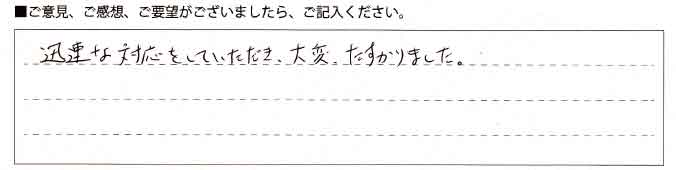 ■ご意見、ご感想、ご要望がございましたら、ご記入ください。
迅速な対応をしていただき、大変、たすかりました。